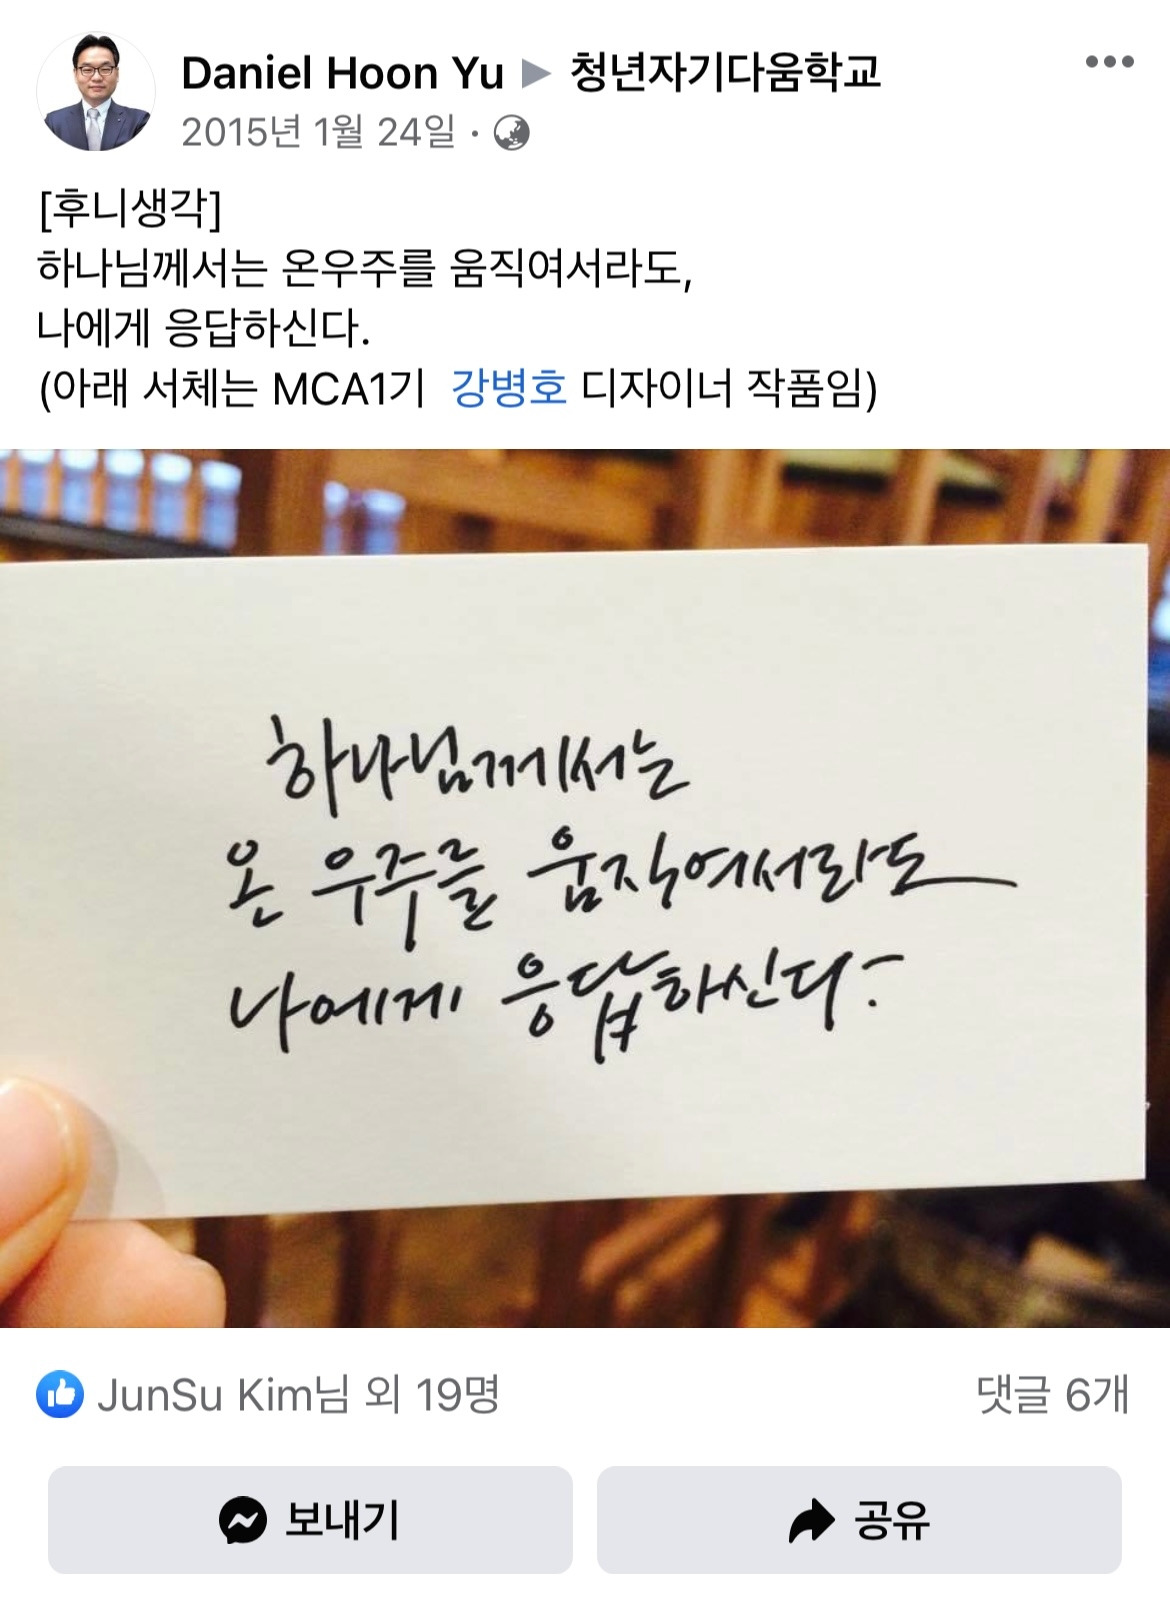 Daniel Hoon Yu ▶ 청년자기다움학교
2015년 1월 24일 ·
[후니생각]
하나님께서는 온우주를 움직여서라도,
나에게 응답하신다.
(아래 서체는 MCA1기 강병호 디자이너 작품임)
하나님께서는
온 우주를 움직여서라도
나에게 응답하신다.
JunSu Kim님 외 19명
댓글 6개
보내기
공유